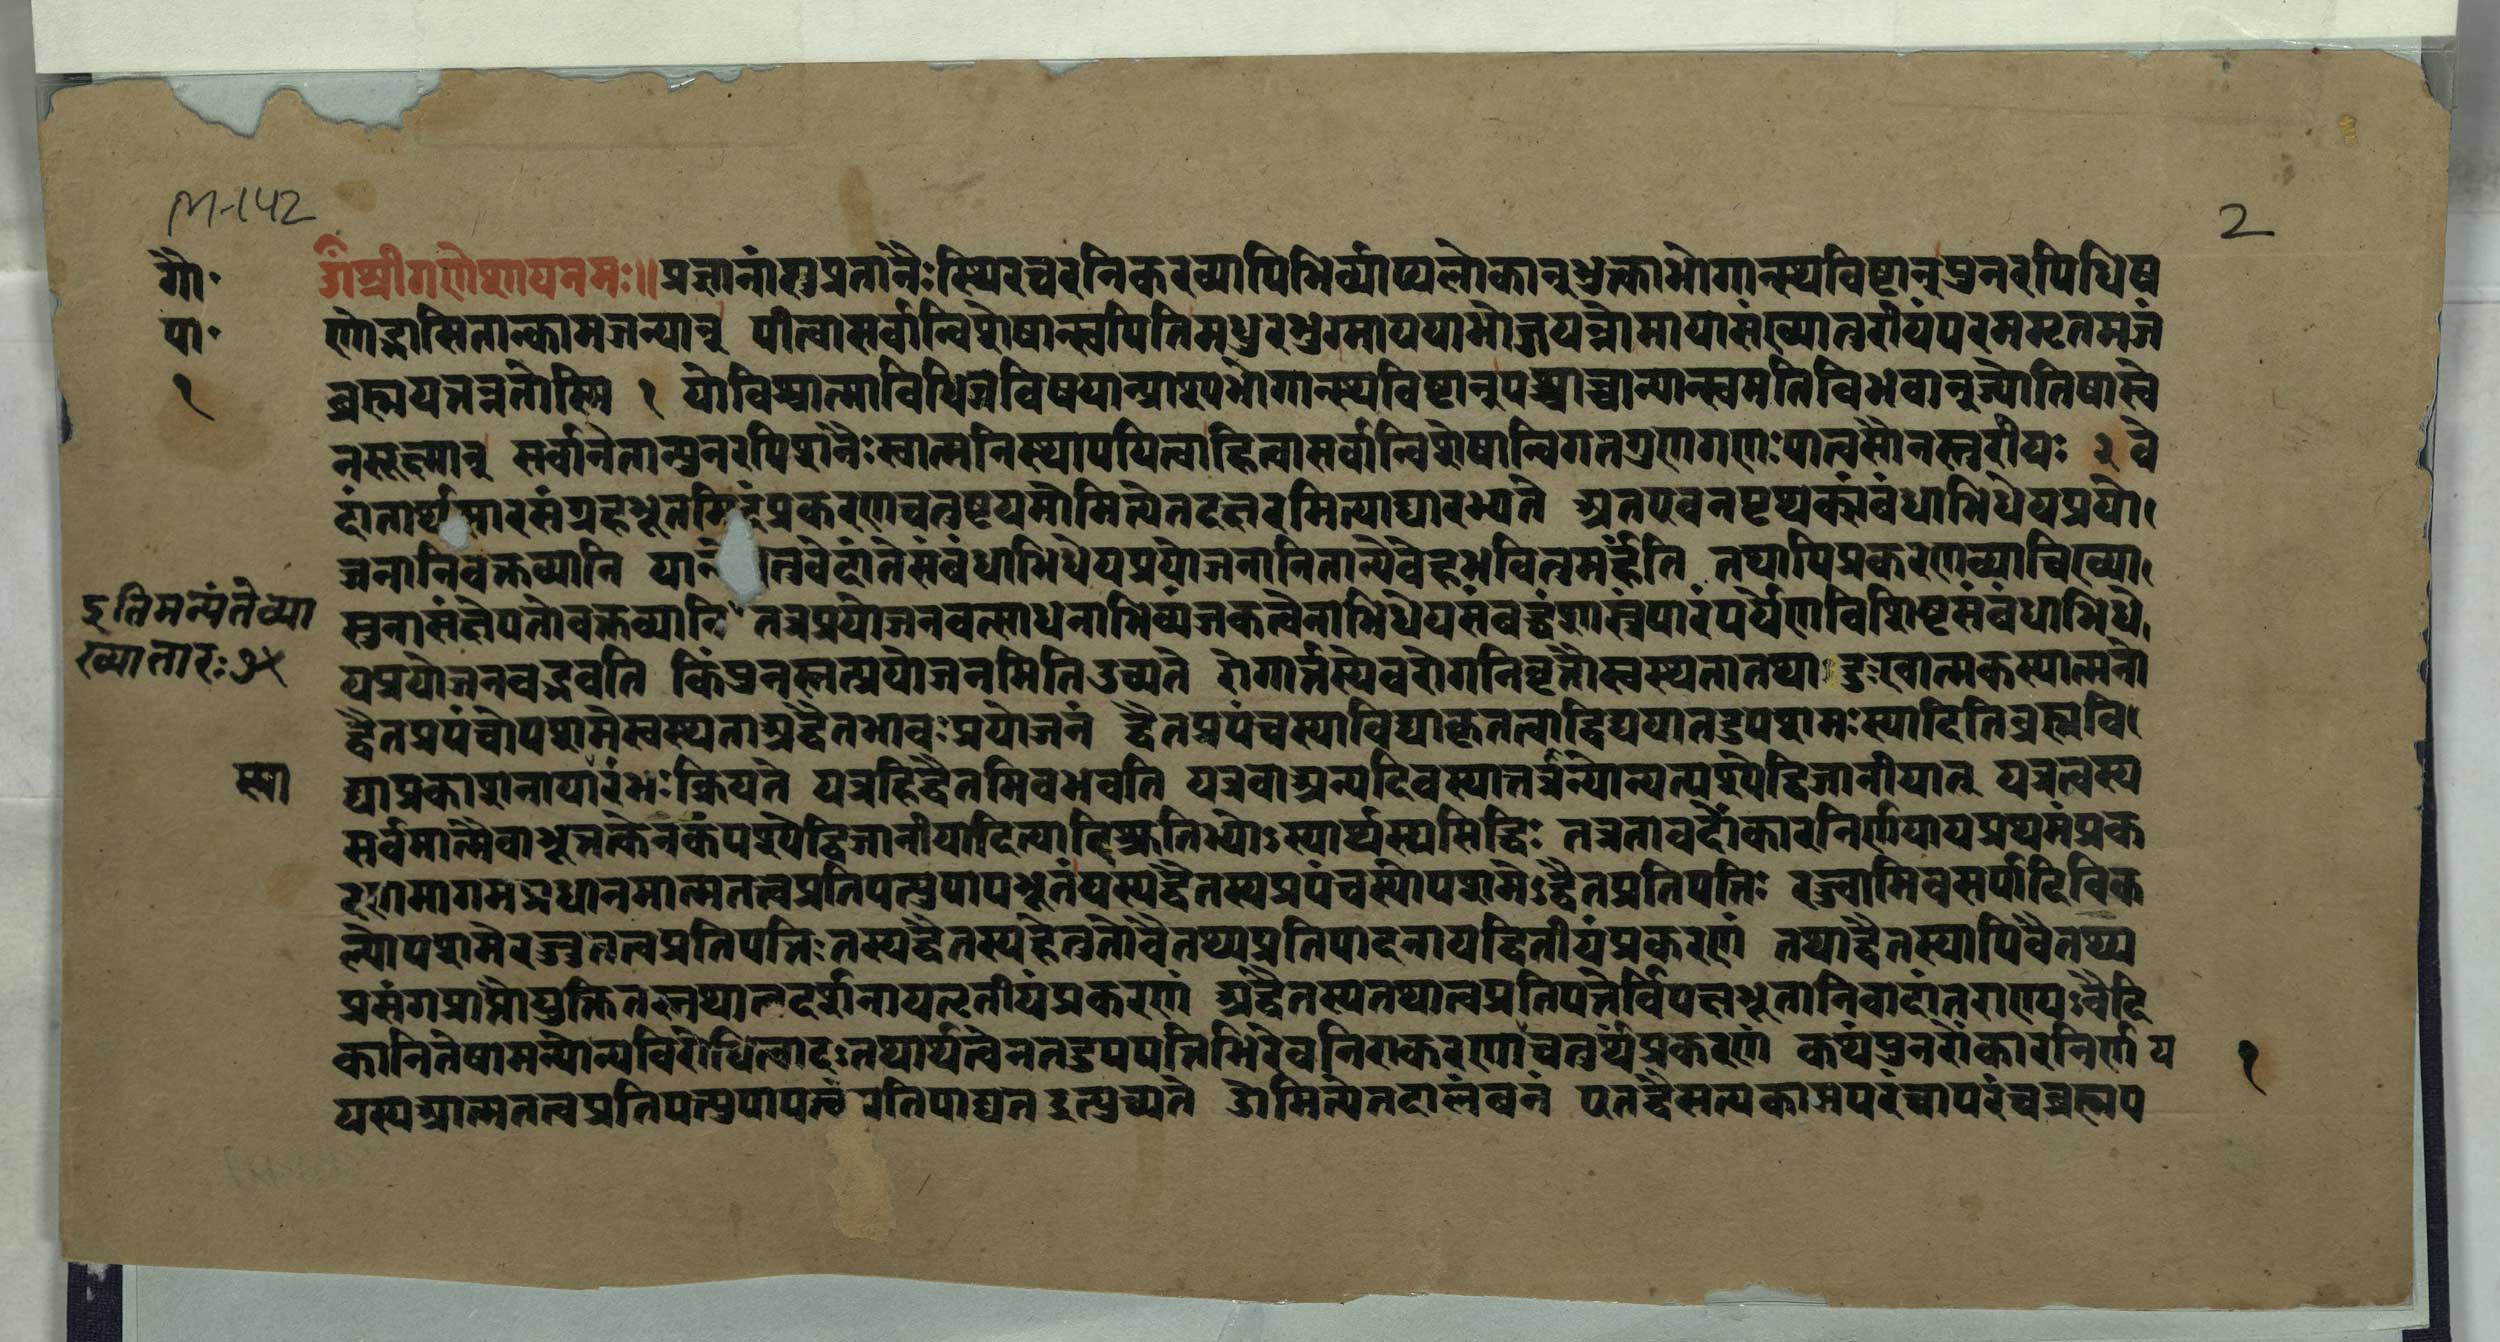 M-142
2
गौ॰
पा॰
१
ॐश्रीगणेशायनमः॥ प्रज्ञानांशुप्रतानैःस्थिरचरनिकरव्यापिभिर्व्याप्यलोकान्भुक्ताभोगान्स्थविष्टान्पुनरपिधिष
णोद्भासितान्कामजन्यान् पीत्वासर्वान्विशेषान्स्वपितिमधुरभुग्माययाभोजयन्नोमायासंख्यातुरीयंपरममृतमजं
ब्रह्मयत्तन्नतोस्मि १ योविश्वात्माविधिजविषयान्प्राश्यभोगान्स्थविष्टान्पश्चाच्चान्यान्स्वमतिविभवान्ज्योतिषास्वे
नसूक्ष्मान् सर्वानेतान्पुनरपिशनैःस्वात्मनिस्थापयित्वाहित्वासर्वान्विशेषान्विगतगुणगणःपात्वसौनस्तुरीयः २ वे
दांतार्थसारसंग्रहभूतमिदंप्रकरणचतुष्टयमोमित्येतदक्षरमित्याद्यारभ्यते अतएवनपृथक्संबंधाभिधेयप्रयो
जनानिवक्तव्यानि यान्ये तुवेदांतेसंबंधाभिधेयप्रयोजनानितान्येवेहभवितुमर्हंति तथापिप्रकरणव्याचिख्या
सुनासंक्षेपतोवक्तव्यानि तत्रप्रयोजनवत्साधनाभिव्यंजकत्वेनाभिधेयसंबद्धंशास्त्रंपारंपर्येणविशिष्टसंबंधाभिधे
इतिमत्यंतेव्या
ख्यातारः७५
यप्रयोजनवद्भवति किंपुनस्तत्प्रयोजनमितिउच्यते रोगार्त्तस्येवरोगनिवृत्तौस्वस्थतातथा दुःखात्मकस्यात्मनो
द्वैतप्रपंचोपशमेस्वस्थताअद्वैतभावःप्रयोजनं द्वैतप्रपंचस्याविद्याकृतत्वाद्विद्ययातदुपशमःस्यादितिब्रह्मवि
स्या
द्याप्रकाशनायारंभःक्रियते यत्रहिद्वैतमिवभवति यत्रवाअन्यदिवस्यात्तत्रान्योन्यत्पश्येद्विजानीयात् यत्रत्वस्य
सर्वमात्मैवाभूत्तत्केनकंपश्येद्विजानीयादित्यादिश्रुतिभ्योऽस्यार्थस्यसिद्धिः तत्रतावदोंकारनिर्णयायप्रथमंप्रक
रणमागमप्रधानमात्मतत्वप्रतिपत्त्युपायभूतंयस्यद्वैतस्यप्रपंचस्योपशमेऽद्वैतप्रतिपत्तिः रज्ज्वामिवसर्पादिविक
ल्पोपशमेरज्जुतत्वप्रतिपत्तिःतस्यद्वैतस्यहेतुतोवैतथ्यप्रतिपादनायद्वितीयंप्रकरणं तथाद्वैतस्यापिवैतथ्य
प्रसंगप्राप्तौयुक्तितस्तथात्वदर्शनायतृतीयंप्रकरणं अद्वैतस्यतथात्वप्रतिपत्तेर्विपक्षभूतानिवादांतराण्यःवैदि
कानितेषामन्योन्यविरोधित्वादःतथार्थत्वेनतदुपपत्तिभिरेवनिराकरणायचतुर्थंप्रकरणं कथंपुनरोंकारनिर्णय
१
यस्यआत्मतत्वप्रतिपत्त्युपायत्वं रतिपाद्यतइत्युच्यते ओमित्येतदालंबनं एतद्वैसत्यकामपरंचापरंचब्रह्मए